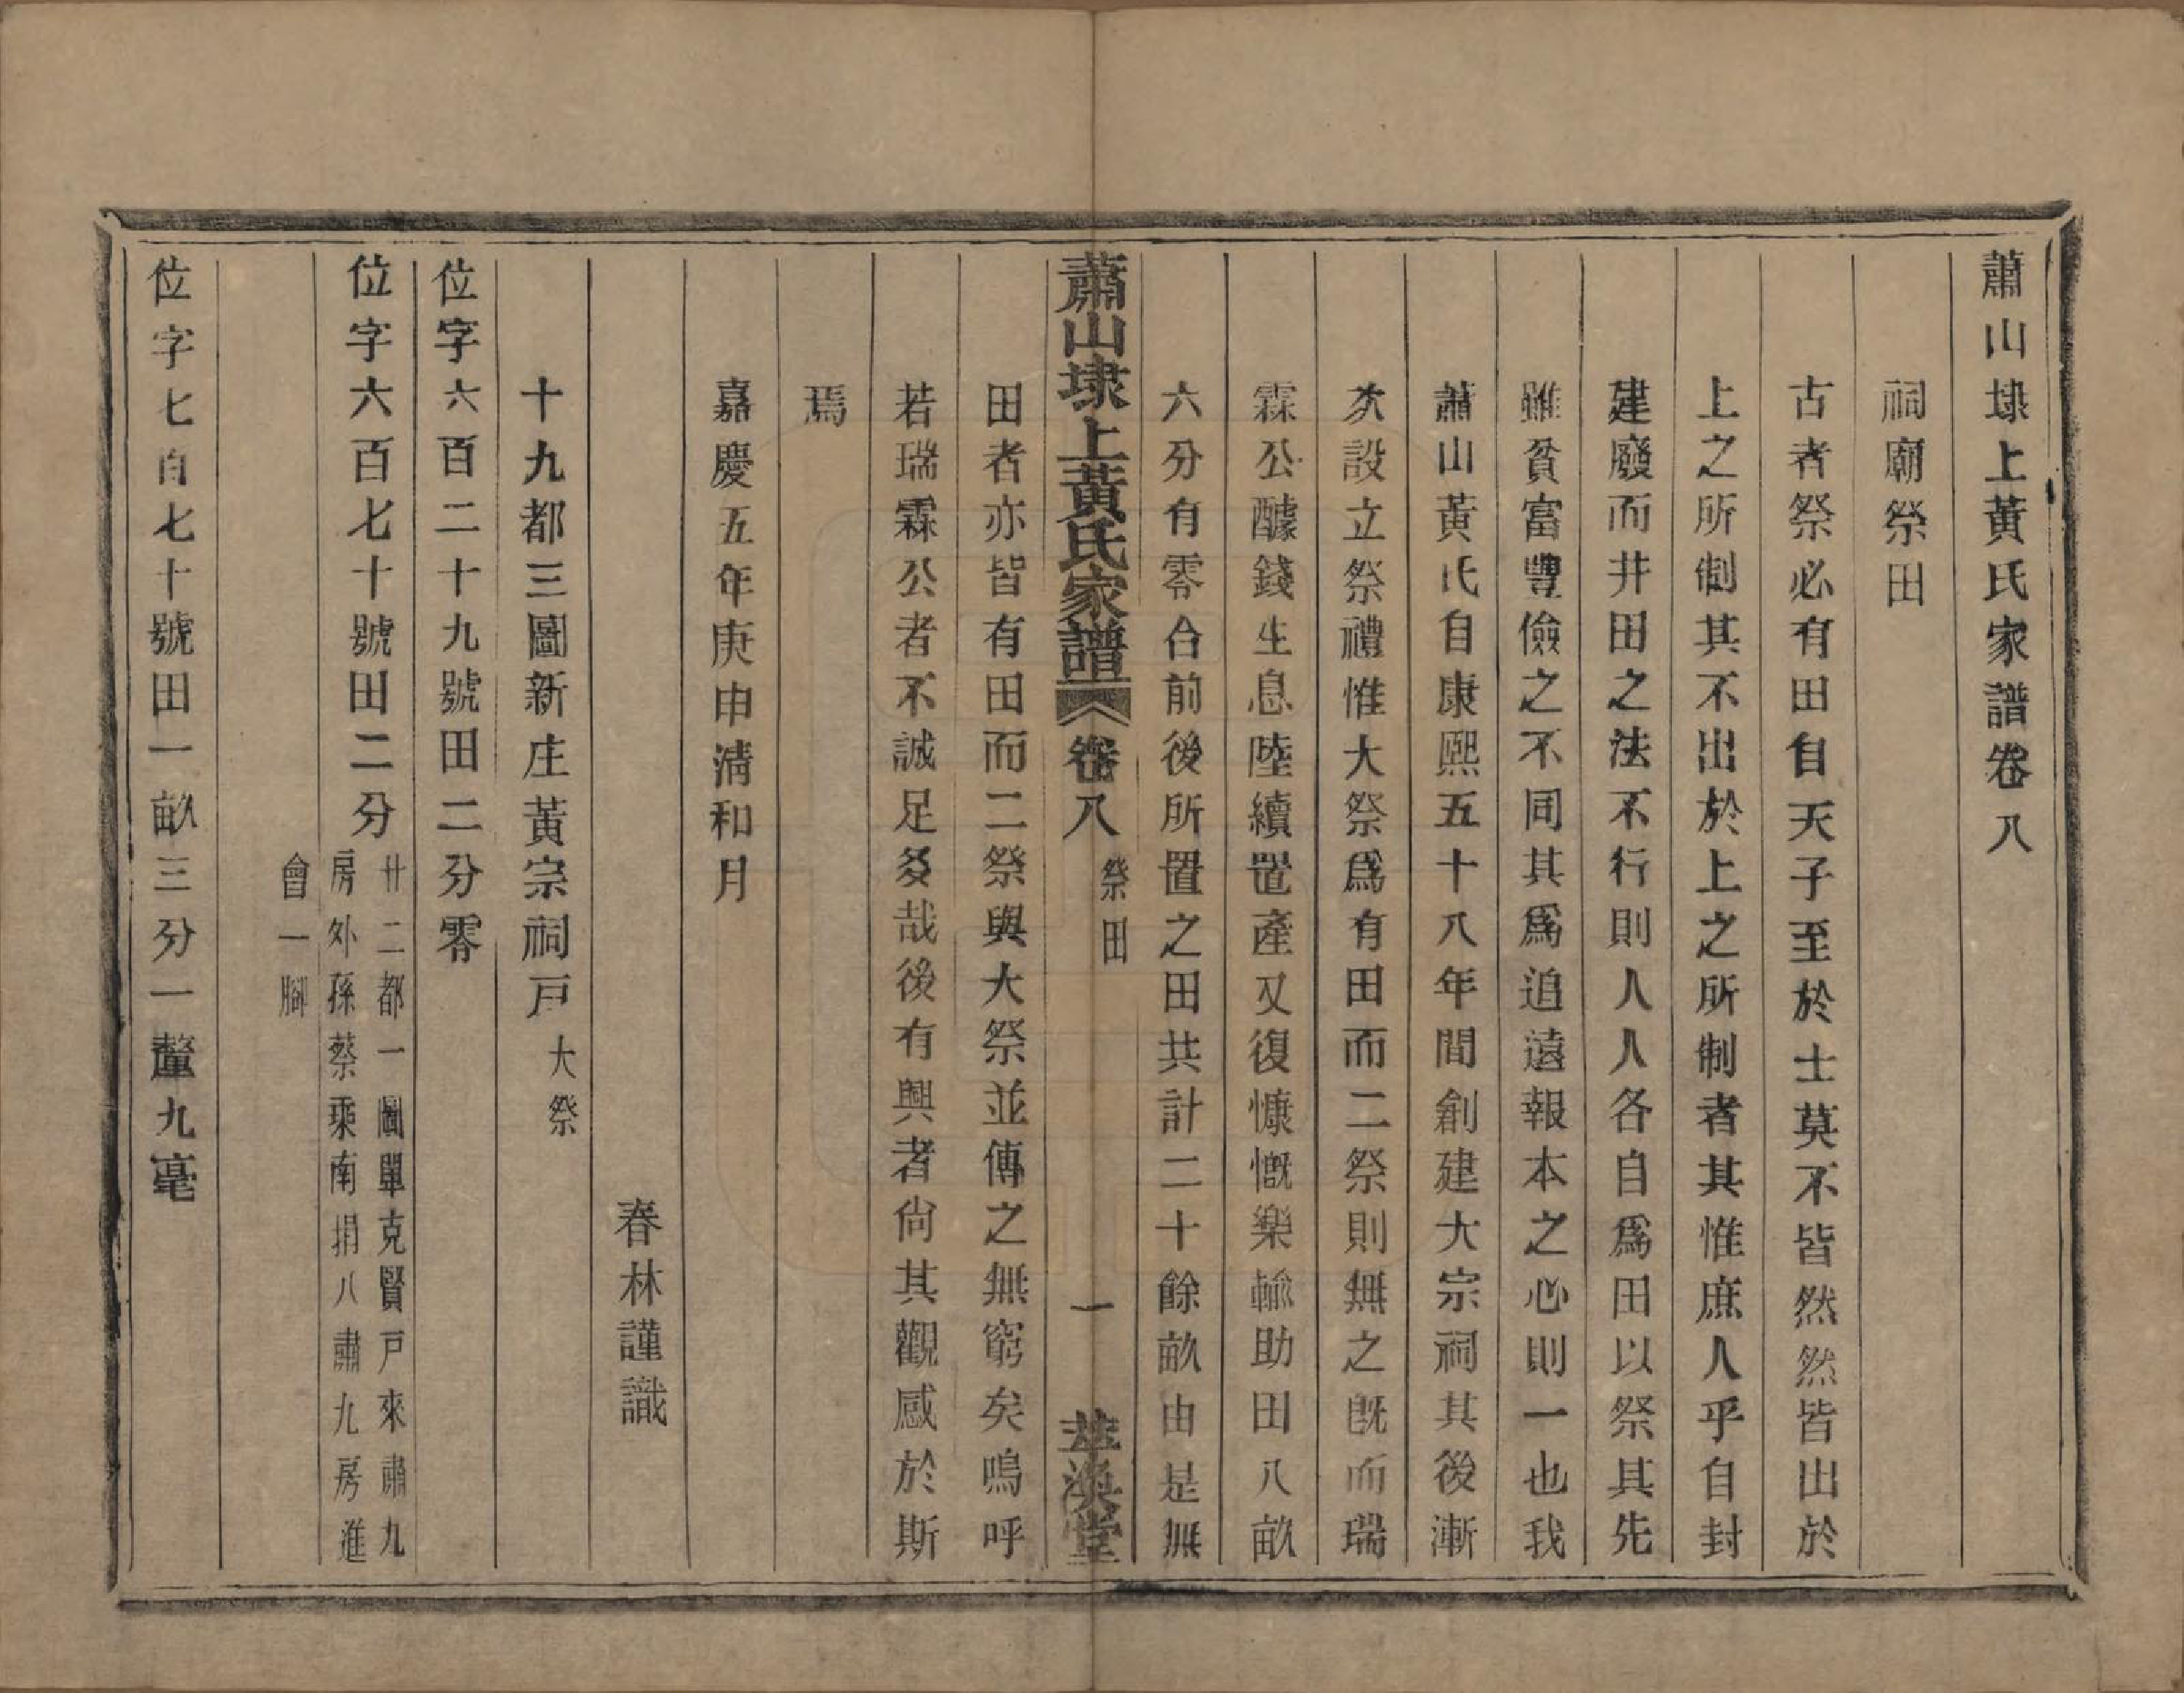 蕭山埭上黃氏家譜卷八
祠廟祭田
古者祭必有田自天子至於士莫不皆然然皆出於
上之所制其不出於上之所制者其惟庶人乎自封
建廢而井田之法不行則人人各自爲田以祭其先
雖貧富豐儉之不同其爲追遠報本之心則一也我
蕭山黃氏自康熙五十八年間創建大宗祠其後漸
次設立祭禮惟大祭爲有田而二祭則無之旣而瑞
霖公醵錢生息陸續置產又復慷慨樂輸助田八畝
六分有零合前後所置之田共計二十餘畝由是無
蕭山埭上黃氏家譜 卷八 祭田 一 萃渙堂
田者亦皆有田而二祭與大祭並傳之無窮矣嗚呼
若瑞霖公者不誠足多哉後有興者尙其觀感於斯
焉
嘉慶五年庚申清和月
春林謹識
十九都三圖新庄黃宗祠戸 大祭
位字六百二十九號田二分零
位字六百七十號田二分 廿二都一圖單克賢戸來肅九
房外孫蔡乘南捐八肅九房進
會一腳
位字七百七十號田一畝三分一釐九毫